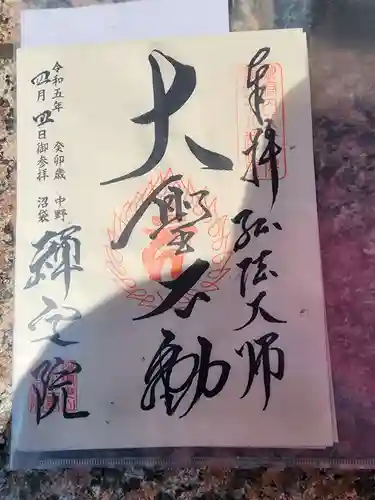 奉拝 弘法大师
大聖不動
令和五年 癸卯歳 中野
四月四日御参拝 沼袋
禪定院